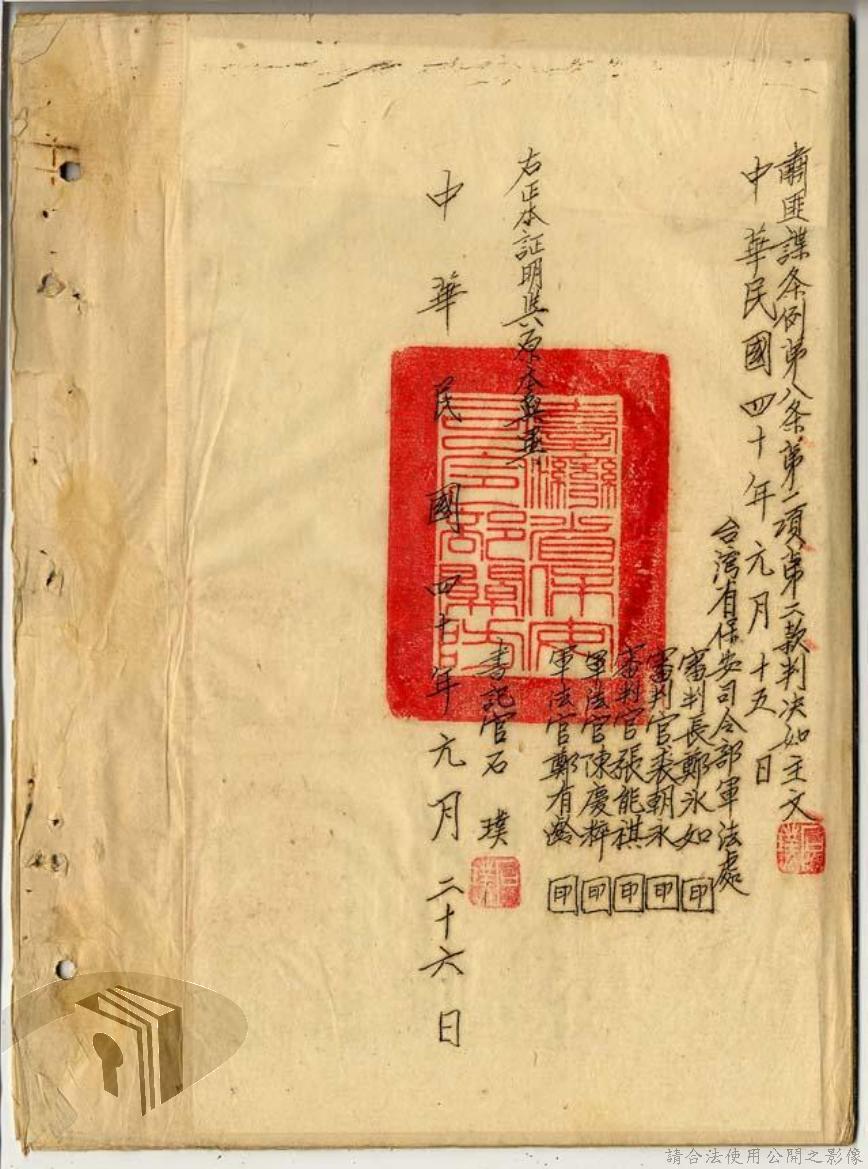 肅匪諜条例第八条第二項第二款判决如主文
中華民國四十年元月十五日
台湾省保安司令部軍法處
審判長鄭永如 印
審判官裘朝永 印
審判官張能祺 印
軍法官陳慶粹 印
軍法官鄭有齡 印
右正本証明與原本無異
書記官石 璞
中華民國四十年元月二十六日
臺灣省保安司令部關防
石璞
石璞
請合法使用公開之影像